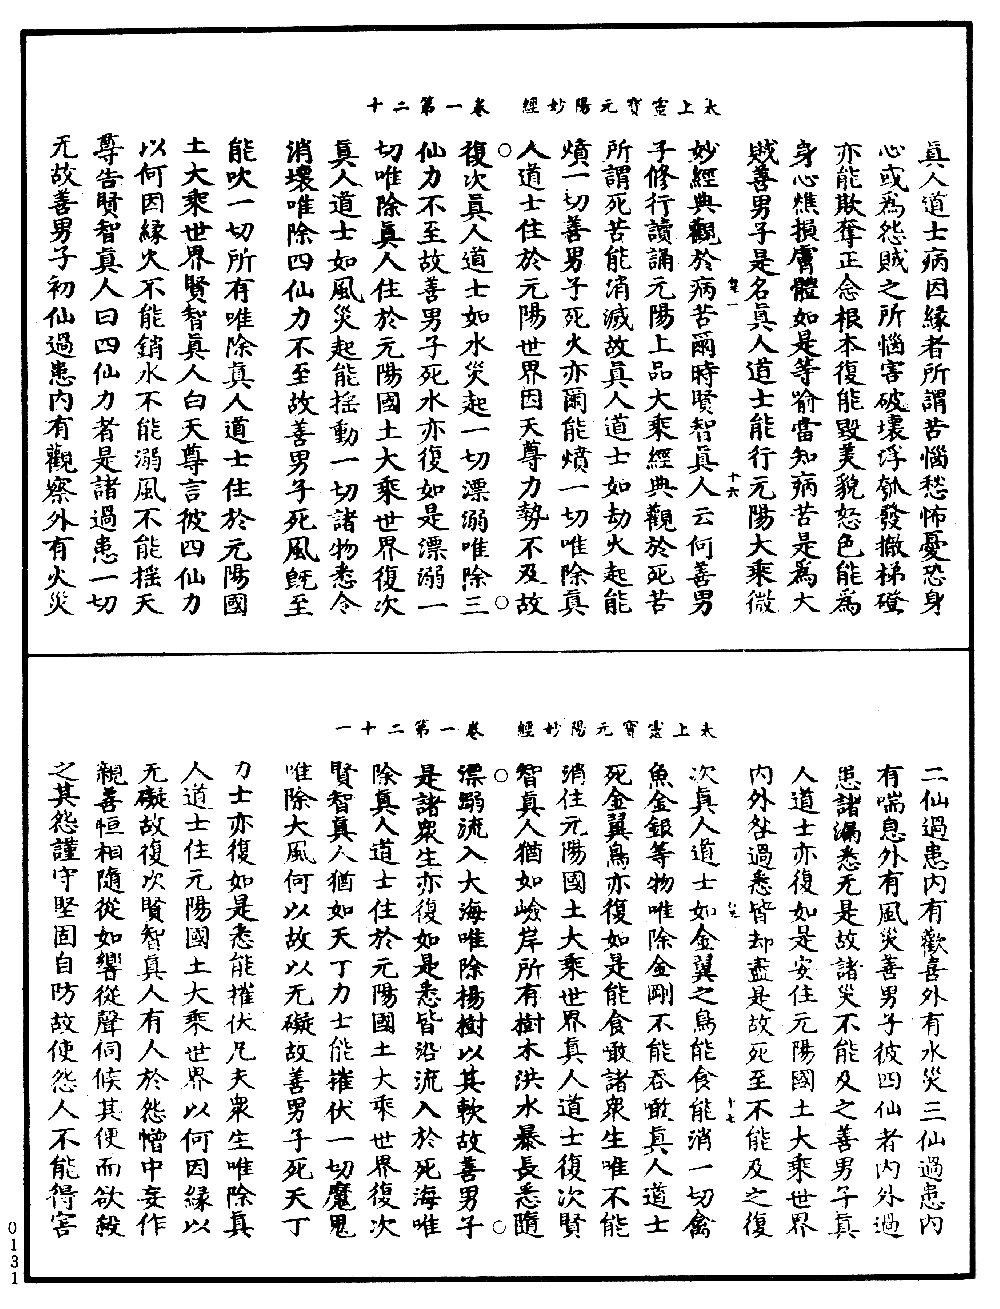 太上靈寶元陽妙經　卷一第二十
真人道士病因緣者所謂苦惱愁怖憂恐身
心或為怨賊之所惱害破壞浮瓠發撤梯磴
亦能欺奪正念根本復能毀美貌怒色能為
身心燋損膚體如是等喻當知病苦是為大
賊善男子是名真人道士能行元陽大乘微
卷一　十六
妙經典觀於病苦爾時賢智真人云何善男
子修行讀誦元陽上品大乘經典觀於死苦
所謂死苦能消滅故真人道士如劫火起能
燌一切善男子死火亦爾能燌一切唯除真
人道士住於元陽世界因天尊力勢不及故
復次真人道士如水災起一切漂溺唯除三
仙力不至故善男子死水亦復如是漂溺一
切唯除真人住於元陽國土大乘世界復次
真人道士如風災起能搖動一切諸物悉令
消壞唯除四仙力不至故善男子死風既至
能吹一切所有唯除真人道士住於元陽國
土大乘世界賢智真人白天尊言彼四仙力
以何因緣火不能銷水不能溺風不能搖天
尊告賢智真人曰四仙力者是諸過患一切
无故善男子初仙過患內有觀察外有火災
太上靈寶元陽妙經　卷一第二十一
二仙過患內有歡喜外有水災三仙過患內
有喘息外有風災善男子彼四仙者內外過
患諸漏悉无是故諸災不能及之善男子真
人道士亦復如是安住元陽國土大乘世界
內外咎過悉皆却盡是故死至不能及之復
十七
次真人道士如金翼之鳥能食能消一切禽
魚金銀等物唯除金剛不能吞噉真人道士
死金翼鳥亦復如是能食噉諸眾生唯不能
消住元陽國土大乘世界真人道士復次賢
智真人猶如嶮岸所有樹木洪水暴長悉隨
漂溺流入大海唯除楊樹以其軟故善男子
是諸眾生亦復如是悉皆沿流入於死海唯
除真人道士住於元陽國土大乘世界復次
賢智真人猶如天丁力士能摧伏一切魔鬼
唯除大風何以故以无礙故善男子死天丁
力士亦復如是悉能摧伏凡夫眾生唯除真
人道士住元陽國土大乘世界以何因緣以
无礙故復次賢智真人有人於怨憎中妄作
親善恒相隨從如響從聲伺候其便而欲殺
之其怨謹守堅固自防故使怨人不能得害
0131